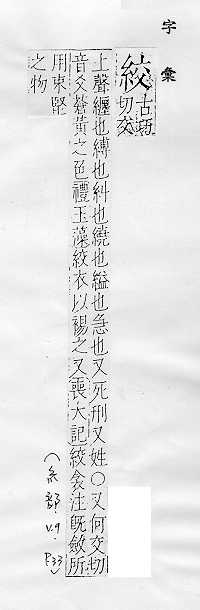 字彙
絞
古巧
切交
上聲纏也縛也糾也繞也縊也急也又死刑又姓○又何交切
音爻蒼黃之色禮玉藻絞衣以裼之又喪大記絞衾注旣斂所
用束堅
之物
(糸部. V.9. P.33)